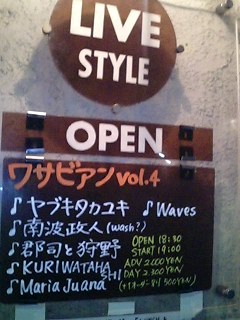 LIVE
STYLE
OPEN
ワサビアン vol.4
♪ ヤブキタカユキ ♪ Waves
♪ 南波政人 (wash?)
♪ 郡司と狩野
OPEN 18:30
START 19:00
♪ KURIWATAHASHI
ADV 2.000YEN
DAY 2.300YEN
♪ Maria Juana
(+1オーダー 500YEN)